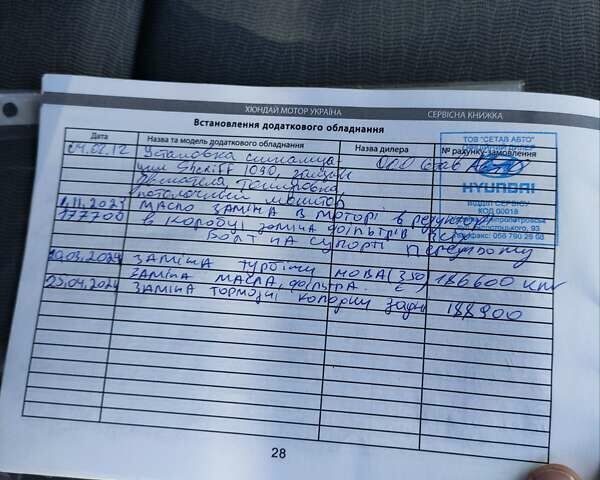 ХЮНДАЙ МОТОР УКРАЇНА СЕРВІСНА КНИЖКА
Встановлення додаткового обладнання
Дата Назва та модель додаткового обладнання Назва дилера № рахунку-замовлення
04.02.12 Установка сигнализа- ООО
ции Sheriff 1090,
тонировка
ТОВ "СЕТАВ АВТО"
HYUNDAI
ВІДДІЛ СЕРВІСУ
КОД 00018
93
факс: 056 790 26 68
11.2023 МАСЛО ЗАМІНА В МОТОРІ в редукторі
177700 в КОРОБЦІ заміна фільтрів
БОЛТ НА СУПОРТІ Переднему
10.03.2024 ЗАМІНА турбіни НОВА (350 186600 км
ЗАМІНА МАСЛА, фільтра.
25.04.2024 ЗАМІНА ТОРМОЗНІ колодки задні 188900
28